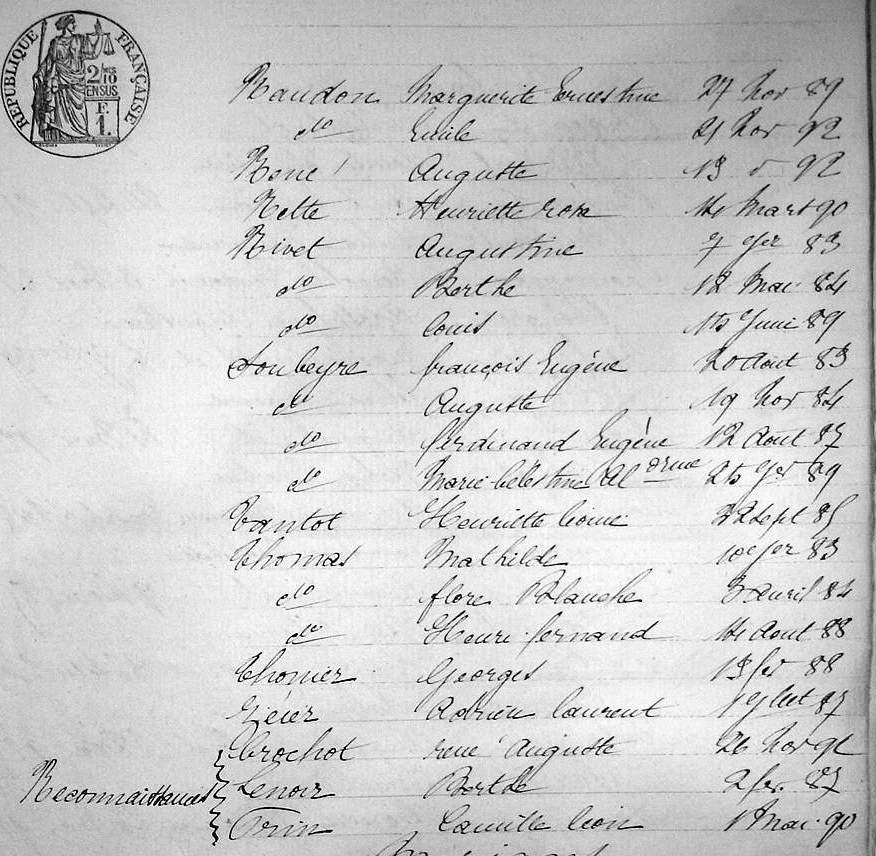 RÉPUBLIQUE FRANÇAISE
2/10
EN SUS
F.
1.
Naudon Marguerite Ernestine 27 Nov 89
do Emile 21 Nov 92
René Auguste 13 d 92
Rette Henriette rose 14 Mars 90
Rivet Augustine 7 83
do Berthe 12 Mai 84
do Louis 15 Juin 89
Soubeyre François Eugène 20 Aout 83
do Auguste 19 Nov 84
do ferdinand Eugène 12 Aout 87
do Marie Célestine 25 89
Tantot Henriette 22 Sept 85
Thomas Mathilde 83
do flore Blanche 3 Avril 84
do Henri fernand 14 Aout 88
Thonier Georges 13 fer 88
Adrien Laurent 1 87
Brochot rené Auguste 26 Nov 92
Reconnaissances Lenoir Berthe 2 fer. 87
Trin Camille Léon 1 Mai 90